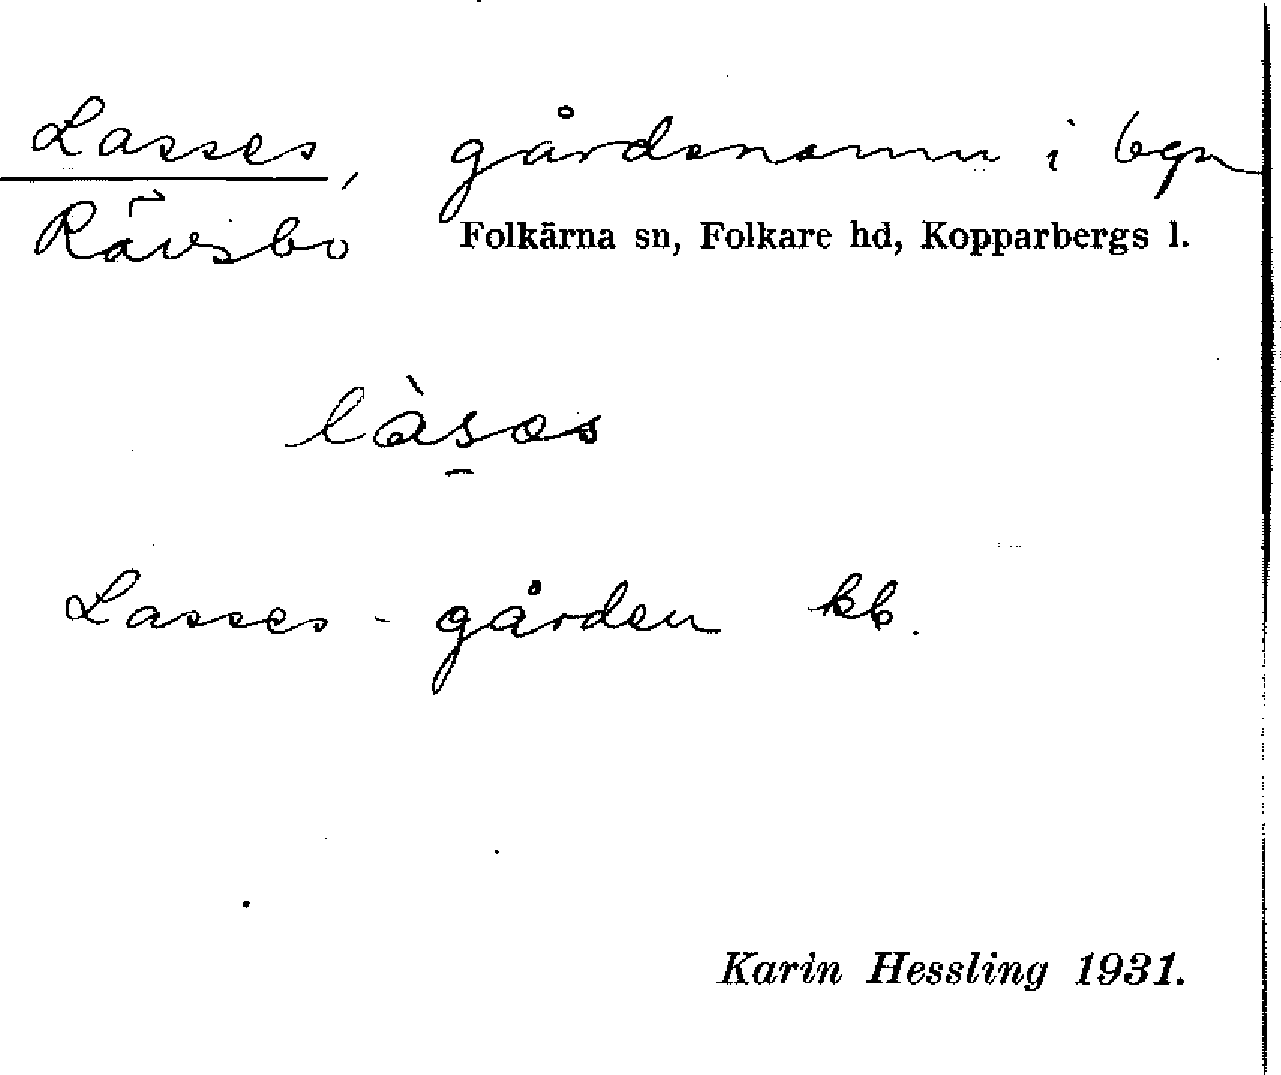 Lasses, gårdsnamn i byn
Rävsbo Folkärna sn, Folkare hd, Kopparbergs l.
làsəs
Lasses-gården kb.
Karin Hessling 1931.